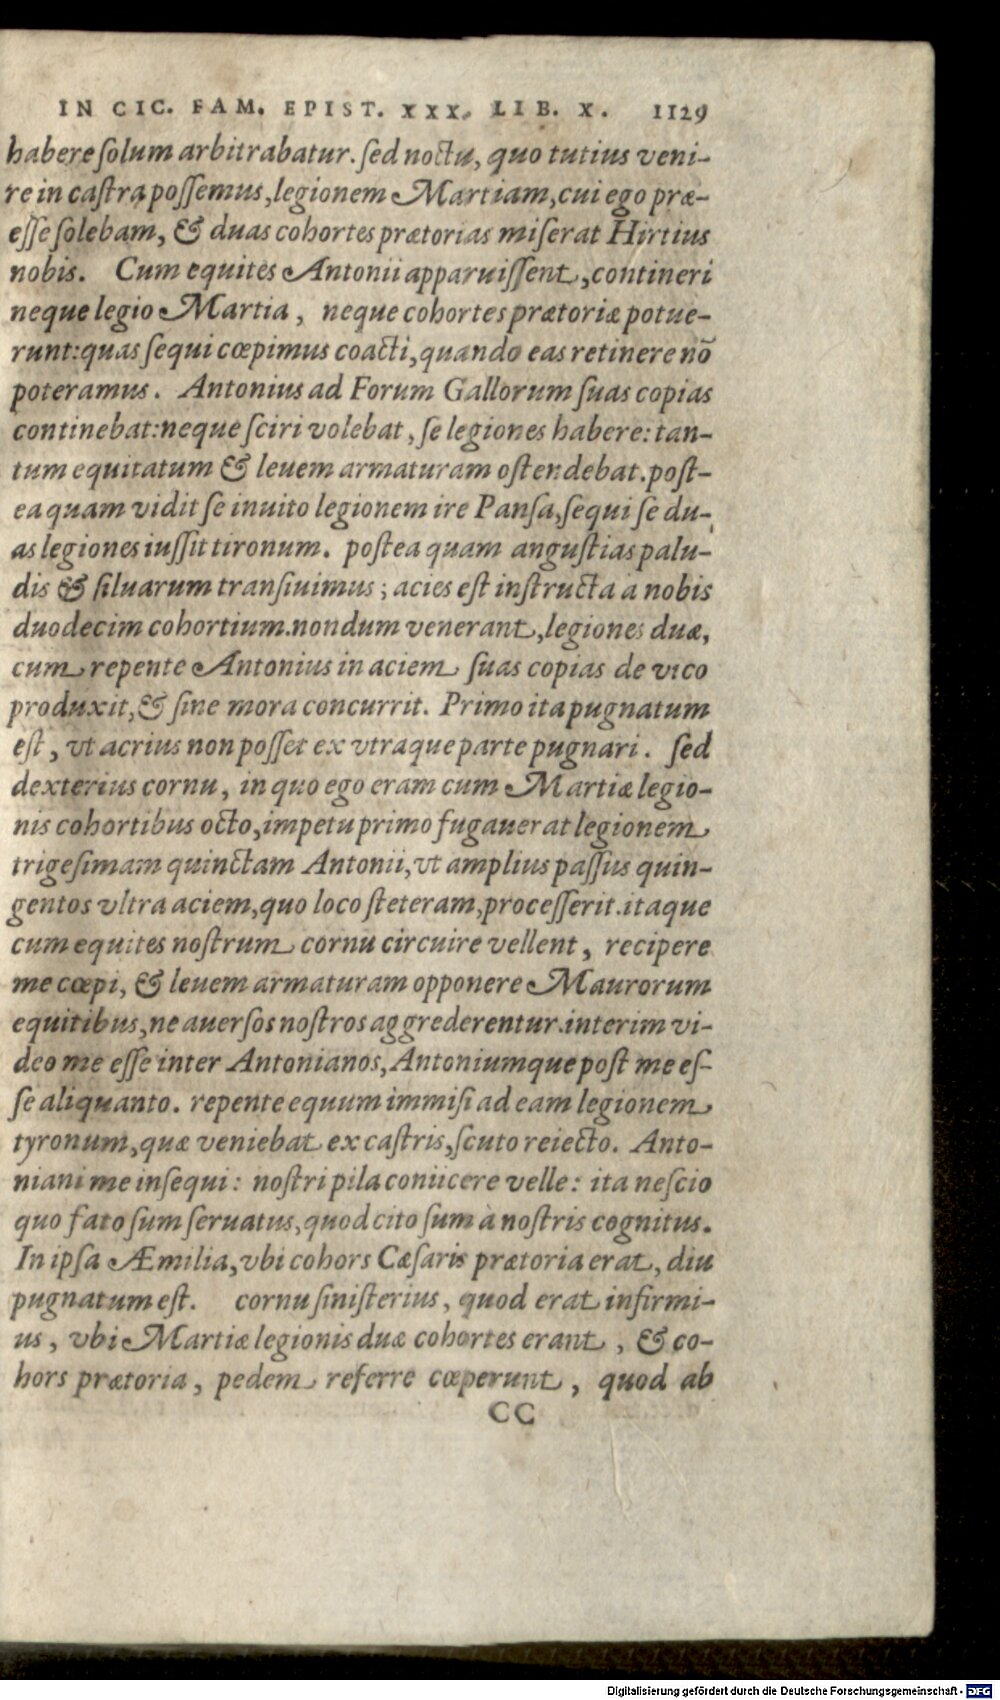 IN CIC. FAM. EPIST. XXX. LIB. X. 1129
habere ſolum arbitrabatur. ſed noctu, quo tutius veni-
re in caſtra poſſemus, legionem Martiam, cui ego præ-
eſſe ſolebam, & duas cohortes prætorias miſerat Hirtius
nobis. Cum equites Antonii apparuiſſent, contineri
neque legio Martia, neque cohortes prætoriæ potue-
runt: quas ſequi cœpimus coacti, quando eas retinere nō
poteramus. Antonius ad Forum Gallorum ſuas copias
continebat: neque ſciri volebat, ſe legiones habere: tan-
tum equitatum & leuem armaturam oſtendebat. poſt-
ea quam vidit ſe inuito legionem ire Panſa, ſequi ſe du-
as legiones iuſſit tironum. poſtea quam anguſtias palu-
dis & ſiluarum tranſiuimus; acies eſt inſtructa à nobis
duodecim cohortium. nondum venerant, legiones duæ,
cum repente Antonius in aciem ſuas copias de vico
produxit, & ſine mora concurrit. Primo ita pugnatum
eſt, vt acrius non poſſet ex vtraque parte pugnari. ſed
dexterius cornu, in quo ego eram cum Martiæ legio-
nis cohortibus octo, impetu primo fugauerat legionem
trigeſimam quinctam Antonii, vt amplius paſſus quin-
gentos vltra aciem, quo loco ſteteram, proceſſerit. itaque
cum equites noſtrum cornu circuire vellent, recipere
me cœpi, & leuem armaturam opponere Maurorum
equitibus, ne auerſos noſtros aggrederentur. interim vi-
deo me eſſe inter Antonianos, Antoniumque poſt me eſ-
ſe aliquanto. repente equum immiſi ad eam legionem
tyronum, quæ veniebat ex caſtris, ſcuto reiecto. Anto-
niani me inſequi: noſtri pila coniicere velle: ita neſcio
quo fato ſum ſeruatus, quod cito ſum à noſtris cognitus.
In ipſa Æmilia, vbi cohors Cæſaris prætoria erat, diu
pugnatum eſt. cornu ſiniſterius, quod erat infirmi-
us, vbi Martiæ legionis duæ cohortes erant, & co-
hors prætoria, pedem referre cœperunt, quod ab
CC
Digitalisierung gefördert durch die Deutsche Forschungsgemeinschaft - DFG